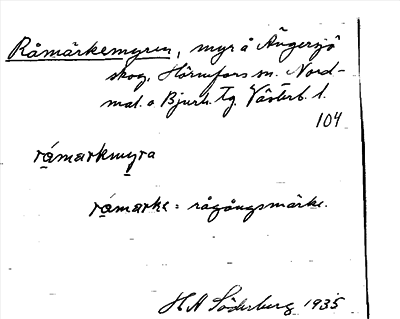 Råmärkemyren, myr å Ängersjö
skog, Hörnefors sn. Nord-
mal. o Bjurh. tg. Västerb. l.
104
råmarkmyra
råmarke = rågångsmärke.
H A Söderberg 1935